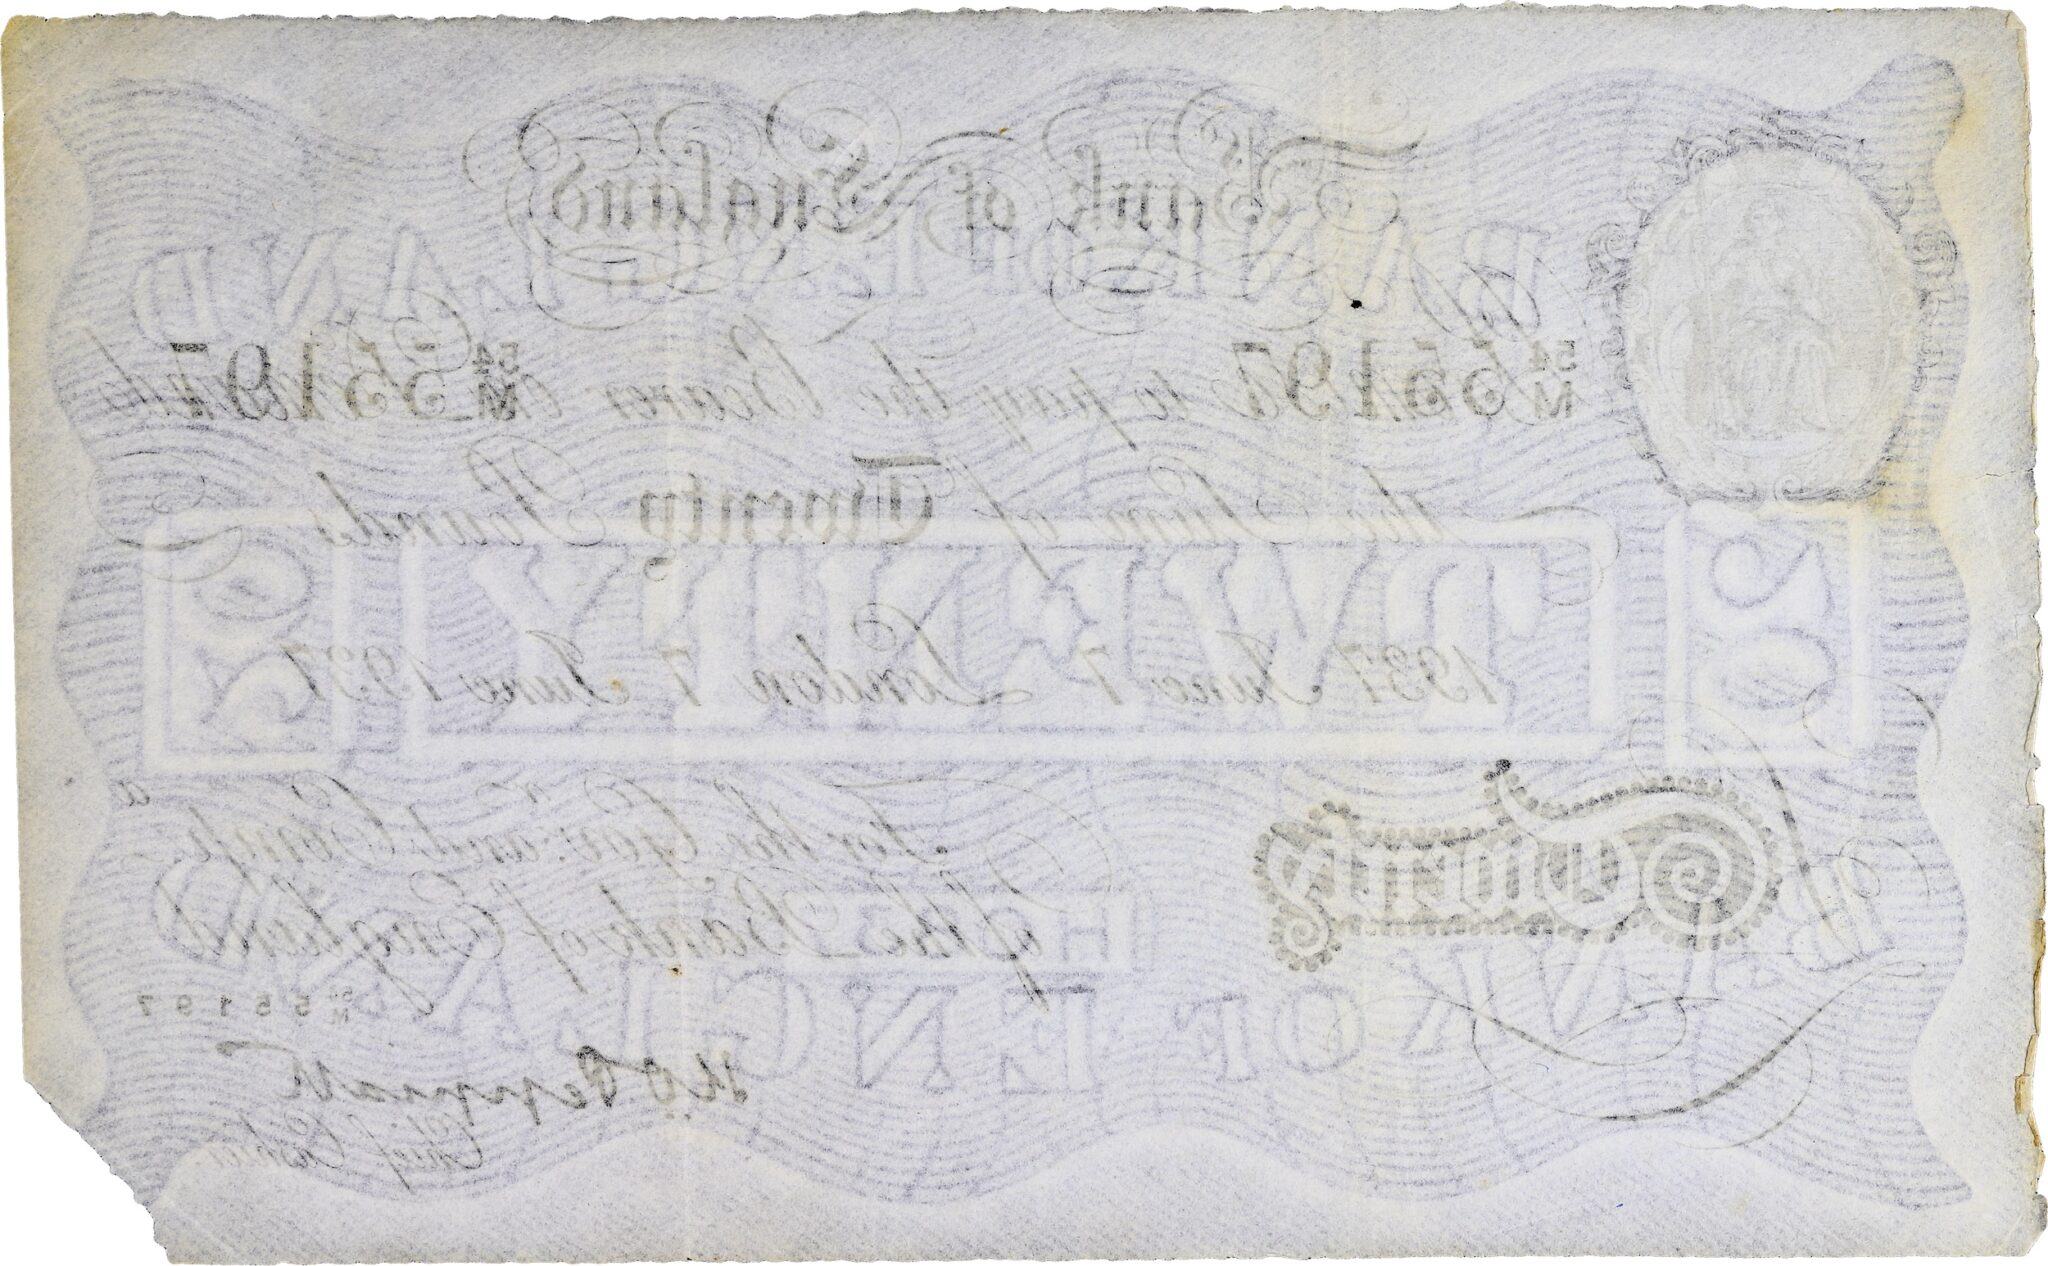 Bank of England
BANK OF ENGLAND
I Promise to pay the Bearer on Demand
54/M 55197 54/M 55197
the Sum of Twenty Pounds
20 TWENTY 20
1937 June 7 London 7 June 1937
Twenty
For the Govr. and Compa.
of the Bank of England
THE
BANK OF ENGLAND
54/M 55197
K.O. Peppiatt
Chief Cashier